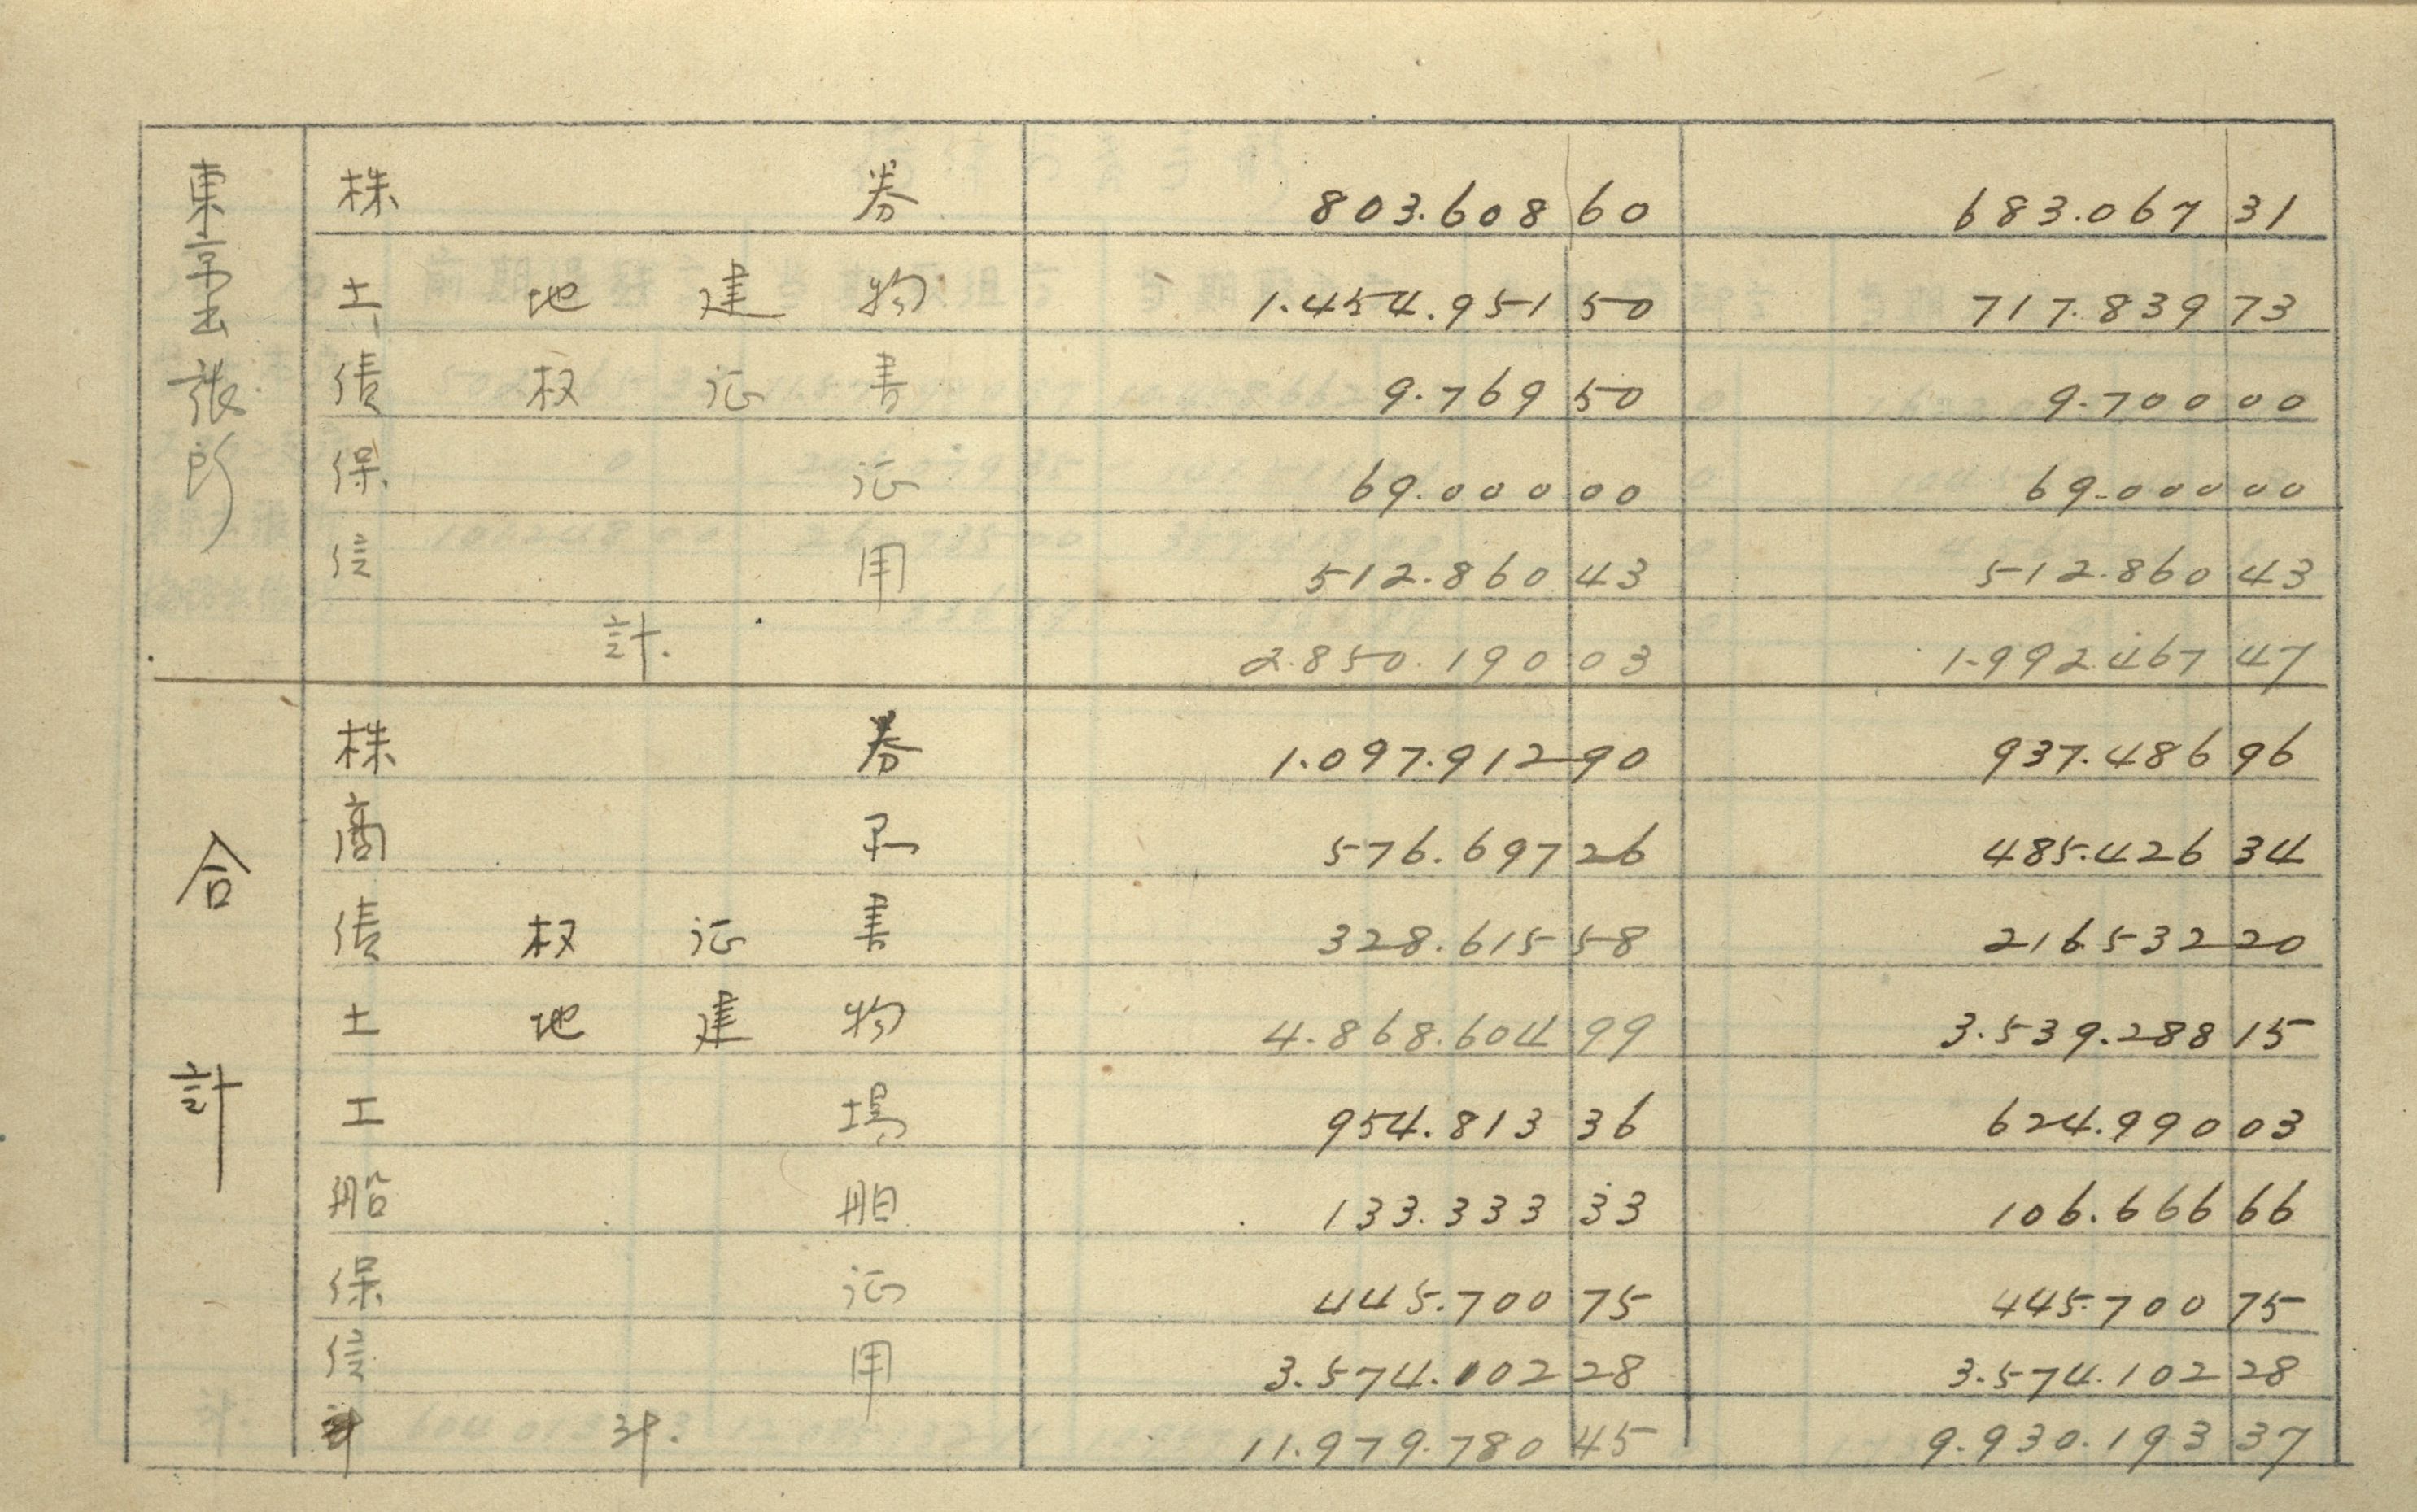 東京出張所
株券 803.608 60 683.067 31
土地建物 1.454.951 50 717.839 73
債权证書 9.769 50 9.700 00
保证 69.000 00 69.000 00
信用 512.860 43 512.860 43
計. 2.850.190 03 1.992.467 47
合計
株券 1.097.912 90 937.486 96
商品 576.697 26 485.426 34
債权证書 328.615 58 216.532 20
土地建物 4.868.604 99 3.539.288 15
工場 954.813 36 624.990 03
船舶 133.333 33 106.666 66
保证 445.700 75 445.700 75
信用 3.574.102 28 3.574.102 28
計. 11.979.780 45 9.930.193 37